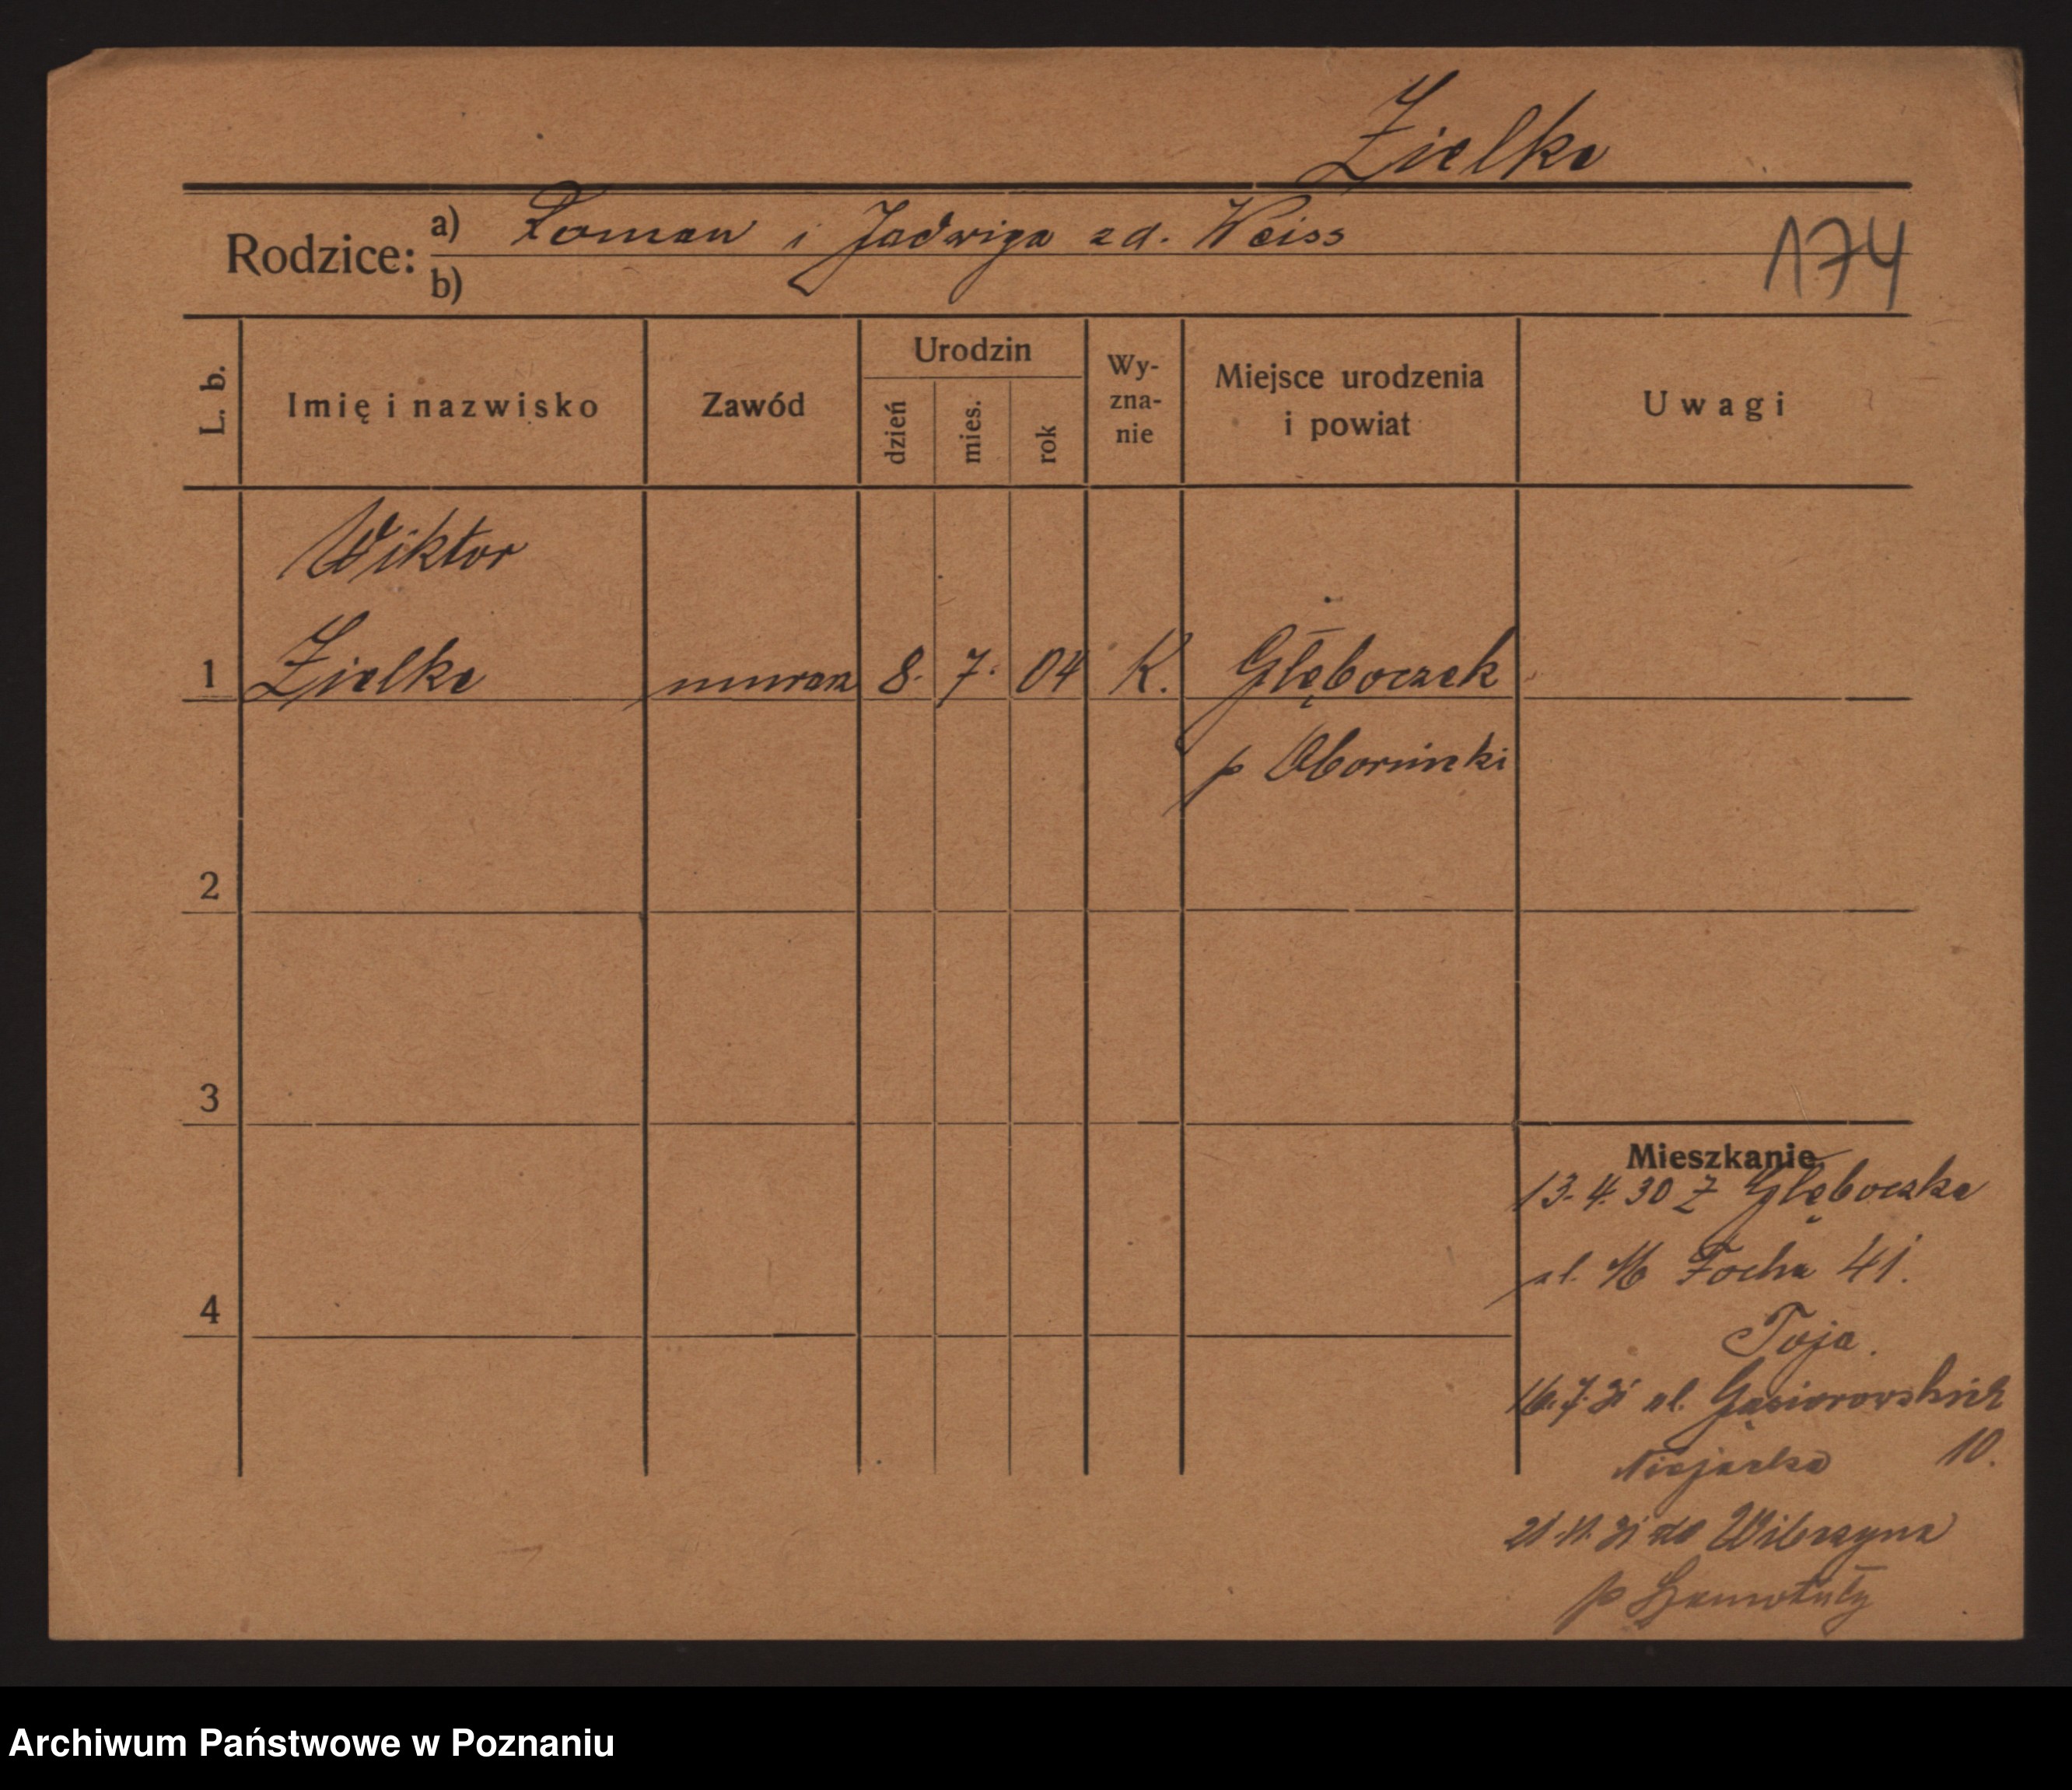 Zielke
Rodzice: a) Roman i Jadwiga zd. Weiss
b)
174
L. b.
Imię i nazwisko
Zawód
Urodzin
dzień
mies.
rok
Wy-
zna-
nie
Miejsce urodzenia
i powiat
Uwagi
Wiktor
1 Zielke murarz 8. 7. 04 K. Głęboczek
p Obornicki
2
3
4
Mieszkanie
13. 4. 30 z Głęboczka
ul. M Focha 41.
Toja.
16.7.31 ul. Gąsiorowskich
10.
21.11.31 do Wilczyna
p Szamotuły
Archiwum Państwowe w Poznaniu